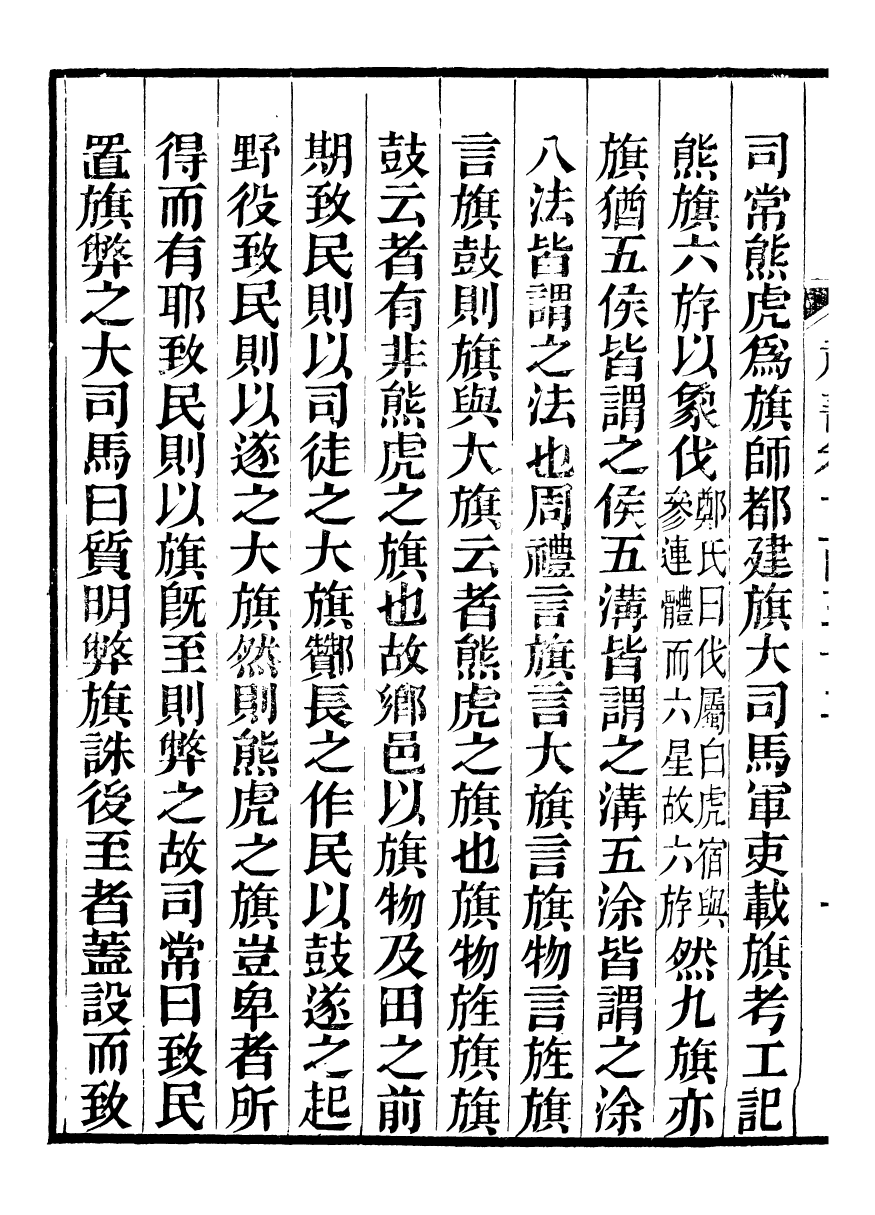 司常熊虎爲旗師都建旗大司馬軍吏載旗考工記
熊旗六斿以象伐鄭氏曰伐屬白虎宿與參連體而六星故六斿然九旗亦
旗猶五侯皆謂之侯五溝皆謂之溝五涂皆謂之涂
八法皆謂之法也周禮言旗言大旗言旗物言旌旗
言旗鼓則旗與大旗云者熊虎之旗也旗物旌旗旗
鼓云者有非熊虎之旗也故鄉邑以旗物及田之前
期致民則以司徒之大旗酇長之作民以鼓遂之起
野役致民則以遂之大旗然則熊虎之旗豈卑者所
得而有耶致民則以旗旣至則弊之故司常曰致民
置旗弊之大司馬曰質明弊旗誅後至者蓋設而致